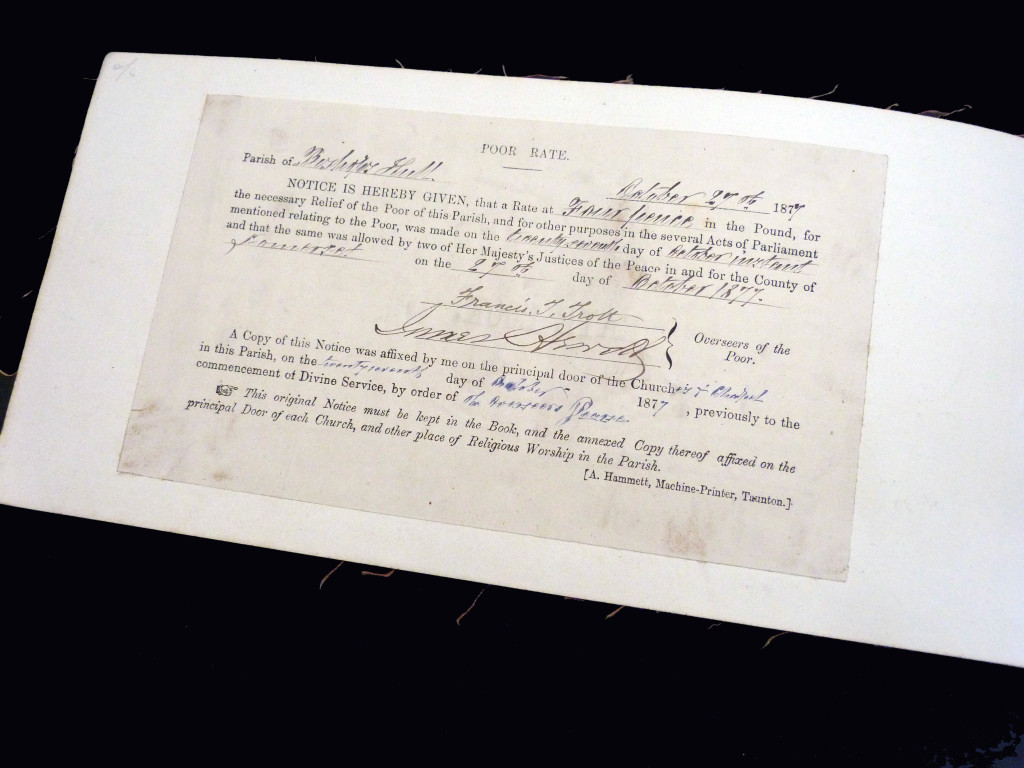 POOR RATE.
Parish of Bishops Hull
October 27th 1877
NOTICE IS HEREBY GIVEN, that a Rate at Four pence in the Pound, for
the necessary Relief of the Poor of this Parish, and for other purposes in the several Acts of Parliament
mentioned relating to the Poor, was made on the twenty seventh day of October instant
and that the same was allowed by two of Her Majesty's Justices of the Peace in and for the County of
Somerset on the 27th day of October 1877.
Francis T. Trott
James
Overseers of the
Poor.
A Copy of this Notice was affixed by me on the principal door of the Churches & Chapel
in this Parish, on the twenty seventh day of October 1877, previously to the
commencement of Divine Service, by order of the Overseers
☞ This original Notice must be kept in the Book, and the annexed Copy thereof affixed on the
principal Door of each Church, and other place of Religious Worship in the Parish.
[A. Hammett, Machine-Printer, Taunton.]